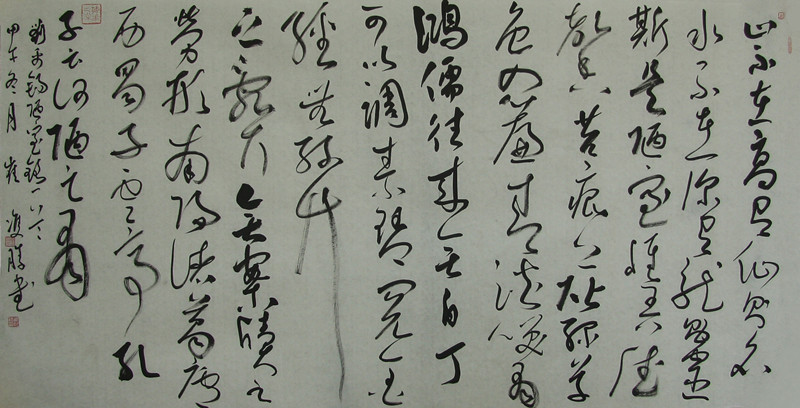 山不在高有仙則名
水不在深有龍則靈
斯是陋室惟吾德
馨苔痕上階綠草
色入簾青談笑有
鴻儒往來無白丁
可以調素琴閱金
經無絲竹
之亂耳無案牘之
勞形南陽諸葛廬
西蜀子雲亭孔
子云何陋之有
劉禹錫陋室銘一首
甲午冬月崔勝書